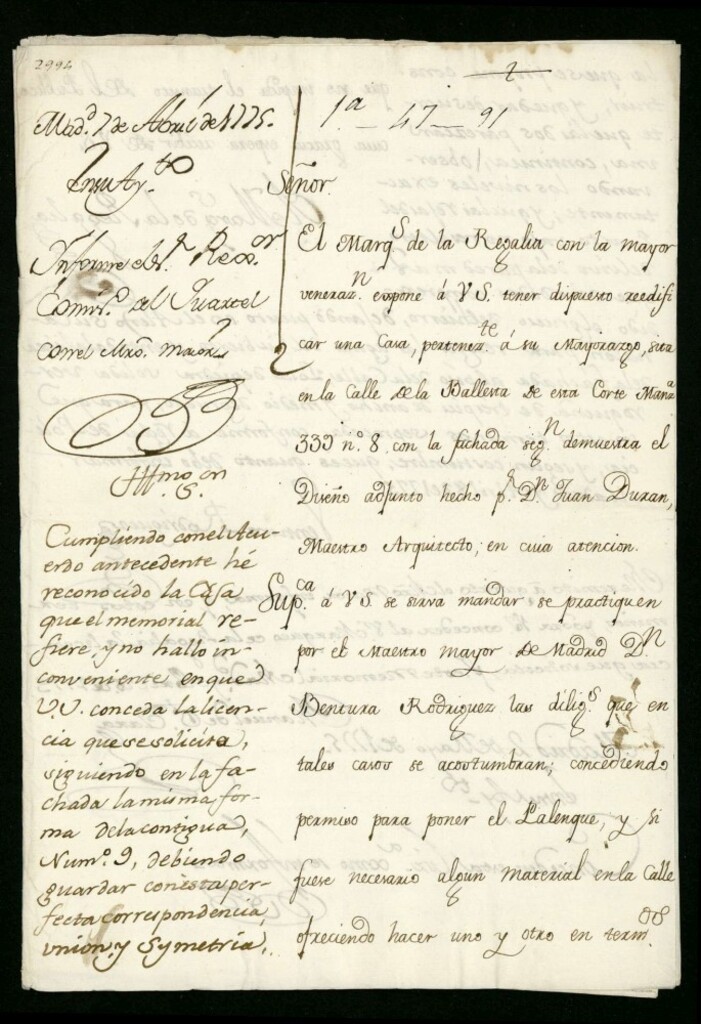 2994
2
1ª - 47 - 91
Madᵈ 7 de Abril de 1775.
En su Ayᵗᵒ
Informe el Sʳ Rexᵒʳ
Comisº. del Quartel
con el Mrō. maior
Illmo. Sᵒⁿ.
Cumpliendo con el Acu-
erdo antecedente hé
reconocido la Casa
que el memorial re-
fiere, y no hallo in-
conveniente en que
V.S. conceda la licen-
cia que se solicita,
siguiendo en la fa-
chada la misma for-
ma de la contigua,
Numº. 9, debiendo
guardar con esta per-
fecta correspondencia,
union, y Symetria,
Señor.
El Marqˢ de la Regalia con la mayor
venerazⁿ. expone á V S. tener dispuesto reedifi
car una Casa, pertenezᵗᵉ. á su Mayorazgo, sita
en la Calle de la Ballesta de esta Corte Manzª
339 nº. 8. con la fachada segⁿ demuestra el
Diseño adjunto hecho pʳ. Dⁿ Juan Duran,
Maestro Arquitecto; en cuia atencion.
Supᶜᵃ. á V S. se sirva mandar se practiquen
por el Maestro mayor de Madrid Dⁿ
Bentura Rodriguez las diligˢ. que en
tales casos se acostumbran; concediendo
permiso para poner el Palenque, y si
fuese necesario algun Material en la Calle
ofreciendo hacer uno y otro en termᵒˢ.